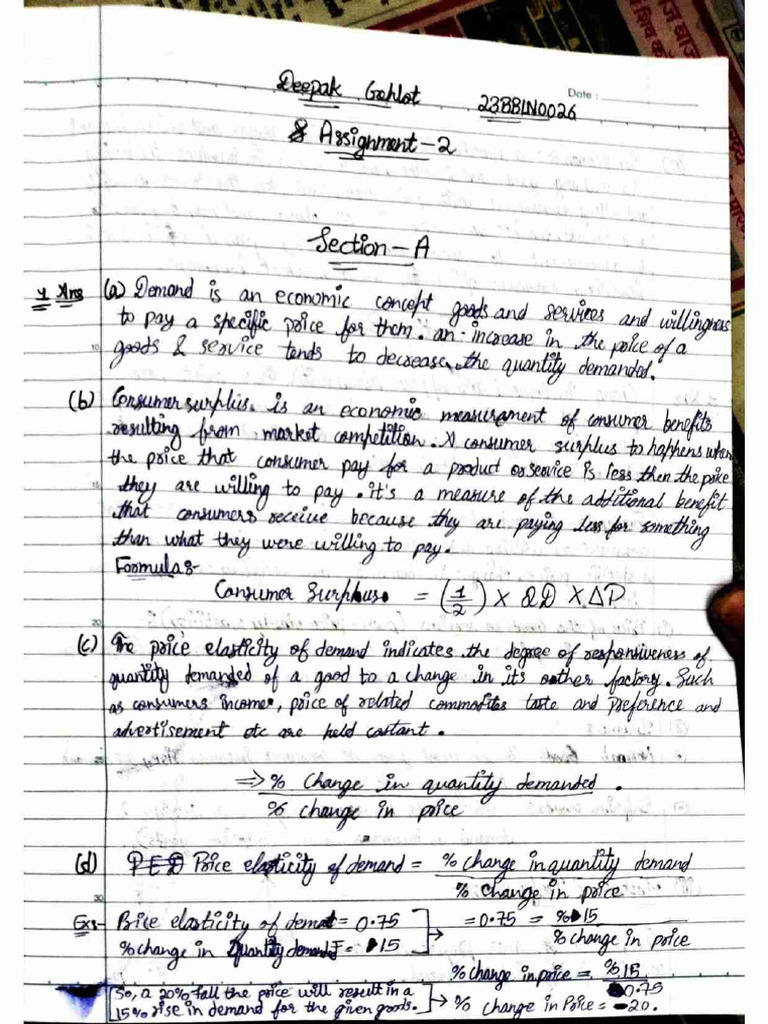 Date :
Deepak Gehlot 23BBLN0026
Assignment - 2
Section - A
1 Ans (a) Demand is an economic concept goods and services and willingness
to pay a specific price for them. an increase in the price of a
goods & service tends to decrease the quantity demanded.
(b) Consumer surplus. is an economic measurement of consumer benefits
resulting from market competition. A consumer surplus to happens when
the price that consumer pay for a product or service is less then the price
they are willing to pay. it's a measure of the additional benefit
that consumers receive because they are paying less for something
than what they were willing to pay.
Formula:-
Consumer Surplus. = (1/2) × QD × ΔP
(c) The price elasticity of demand indicates the degree of responsiveness of
quantity demanded of a good to a change in its other factory. Such
as consumers income, price of related commodites taste and Preference and
advertisement etc are held costant.
⇒ % Change in quantity demanded.
% change in price
(d) PED Price elasticity of demand = % change in quantity demand
% change in price
Ex:- Price elasticity of demat = 0.75 = 0.75 = % 15
% change in Quantity demand = 15 → % change in price
% change in price = % 15
0.75
So, a 20% fall the price will result in a → % change in Price = -20.
15% rise in demand for the given goods.